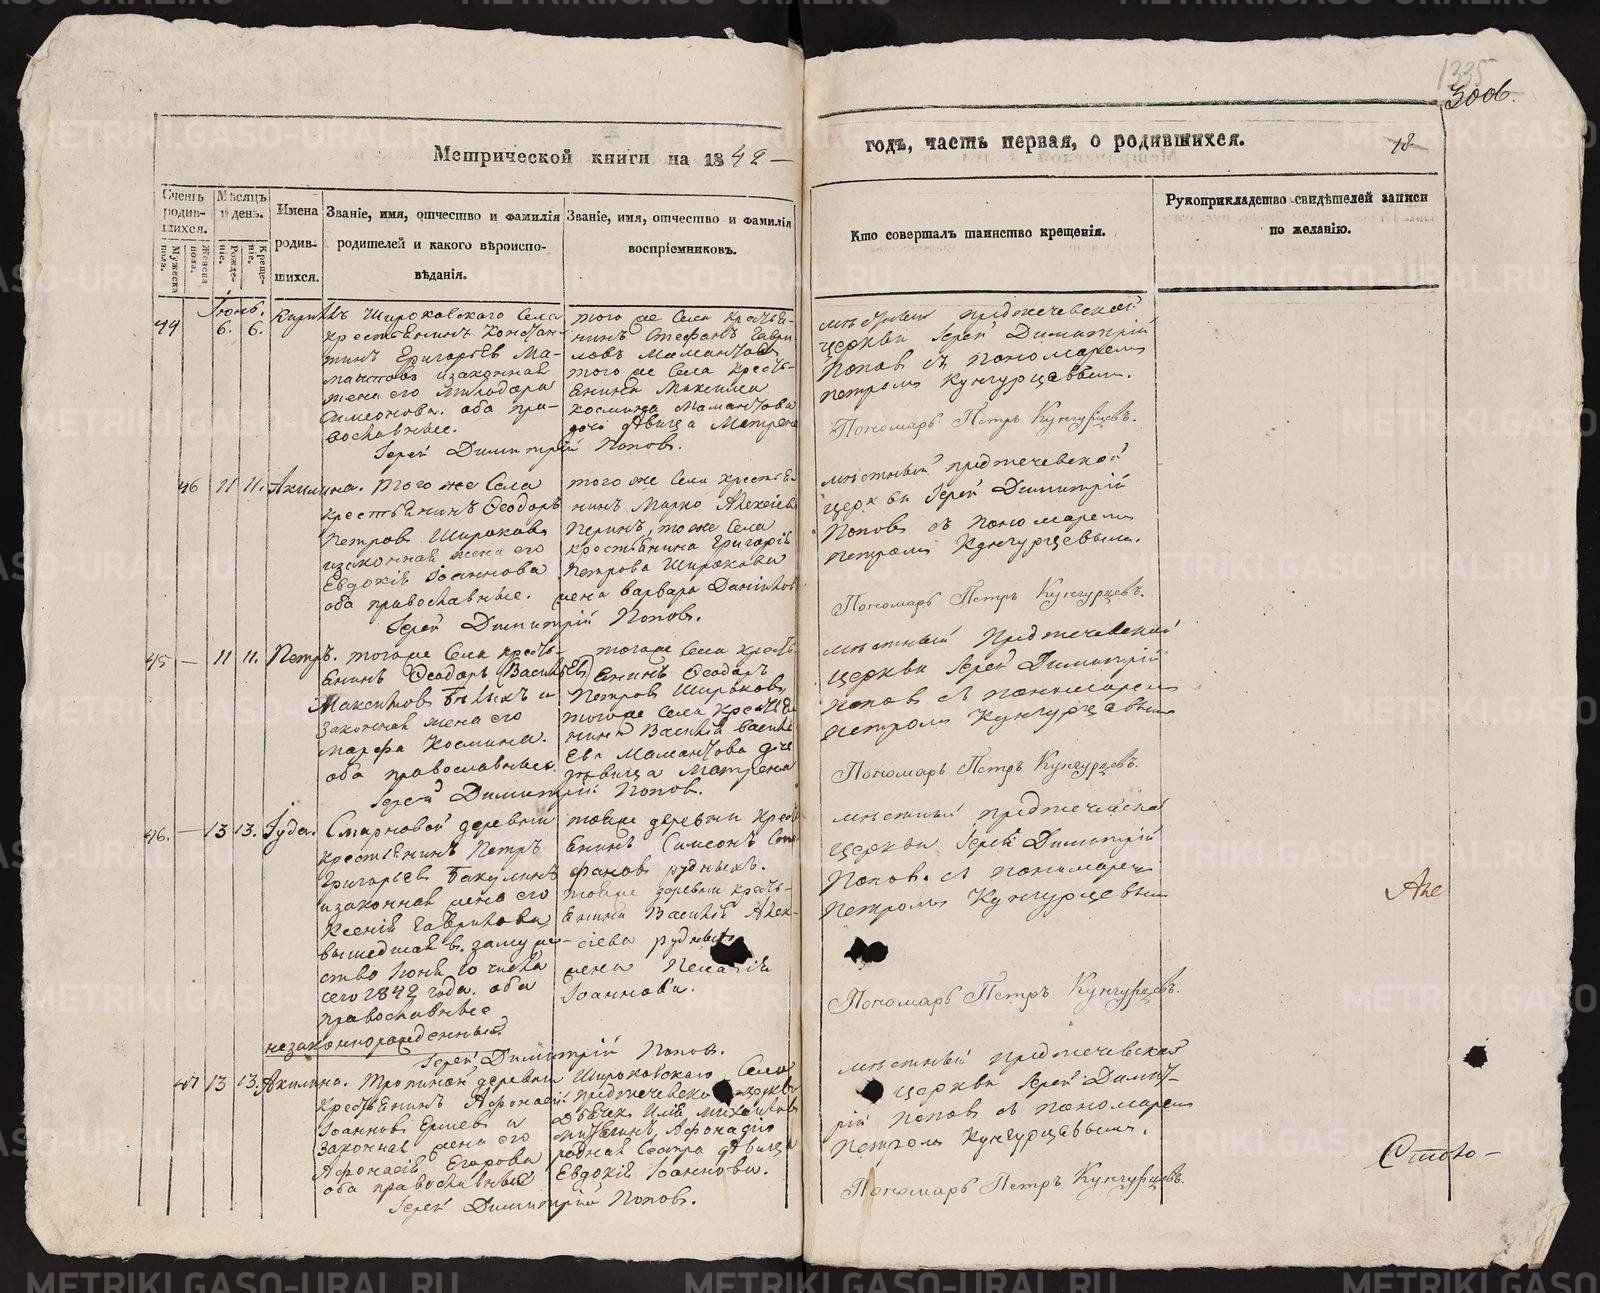 1335
3006.
Метрической книги на 1842 —
годъ, часть первая, о родившихся.
18
Счетъ родив-шихся.
Мужеска пола.
Женска пола.
Мѣсяцъ и день.
Рожде-ніе.
Креще-ніе.
Имена родив-шихся.
Званіе, имя, отчество и фамилія
родителей и какого вѣроиспо-
вѣданія.
Званіе, имя, отчество и фамилія
воспріемниковъ.
Кто совершалъ таинство крещенія.
Рукоприкладство свидѣтелей записи
по желанію.
44
Іюнь
6. 6.
Широковскаго Села
крестьянинъ Констан-
тинъ Григорьевъ Ма-
и законная
жена его
Симеонова. оба пра-
вославные.
того же Села крестья-
нинъ Стефанъ Гаври-
ловъ Мамантовъ
того же Села кресть-
янина Максима
Косминa Мамантова
дочь дѣвица Матрена
Іерей Димитрій Поповъ.
мѣстный предтечевской
церкви Іерей Димитрій
Поповъ съ пономаремъ
Петромъ Кунгурцевымъ.
Пономарь Петръ Кунгурцевъ.
46 11 11. Акилина. того же Села
крестьянинъ Ѳеодоръ
Петровъ Широковъ
и законная жена его
Евдокія Іоаннова
оба православные.
того же Села крестья-
нинъ Марко Алексѣевъ
того же Села
крестьянина Григорія
Петрова Широкова
жена Варвара
Іерей Димитрій Поповъ.
мѣстный предтечевской
церкви Іерей Димитрій
Поповъ съ пономаремъ
Петромъ Кунгурцевымъ.
Пономарь Петръ Кунгурцевъ.
45 — 11 11. Петръ. того же Села кресть-
янинъ Ѳеодоръ (Васильевъ)
и
законная жена его
Марѳа Космина.
оба православные.
того же Села кресть-
янинъ Ѳеодоръ
Петровъ Широковъ,
того же Села крестья-
нина Василія Василь-
ева Мамантова дочь
дѣвица Матрена
Іерей Димитрій Поповъ.
мѣстный Предтечевской
церкви Іерей Димитрій
Поповъ съ пономаремъ
Петромъ Кунгурцевымъ
Пономарь Петръ Кунгурцевъ.
46. — 13 13. Іуда. Смарновой деревни
крестьянинъ Петръ
Григорьевъ Бакулинъ
и законная жена его
Ксенія Гаврилова
вышедшая в. замуже-
ство Іюня 10 числа
сего 1842 года. оба
православные
незаконнорожденный
той же деревни кресть-
янинъ Симеонъ Сте
фановъ рудныхъ.
той же деревни кресть-
янина Василія Алек-
сіева рудныхъ
жена Пелагія
Іоаннова.
Іерей Димитрій Поповъ.
мѣстный предтечевской
церкви Іерей Димитрій
Поповъ. съ пономаремъ
Петромъ Кунгурцевымъ
Пономарь Петръ Кунгурцевъ.
47 13 13. Акилина. Тропиной деревни
крестьянинъ Афонасій
Іоанновъ Ершевъ и
законная жена его
Афонасія Егорова
оба православные
Широковскаго Села
предтечевской церкви
дьячекъ Илія Михайловъ
Афонасія
родная сестра дѣвица
Евдокія Іоаннова.
Іерей Димитрій Поповъ.
мѣстный предтечевской
церкви Іерей Димит-
рій Поповъ съ пономаремъ
Петромъ Кунгурцевымъ.
Пономарь Петръ Кунгурцевъ.
METRIKI.GASO-URAL.RU